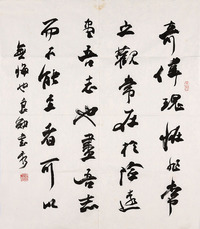 奇偉瑰怪非常
之觀常在於險遠
盡吾志也盡吾志
而不能至者可以
無悔也